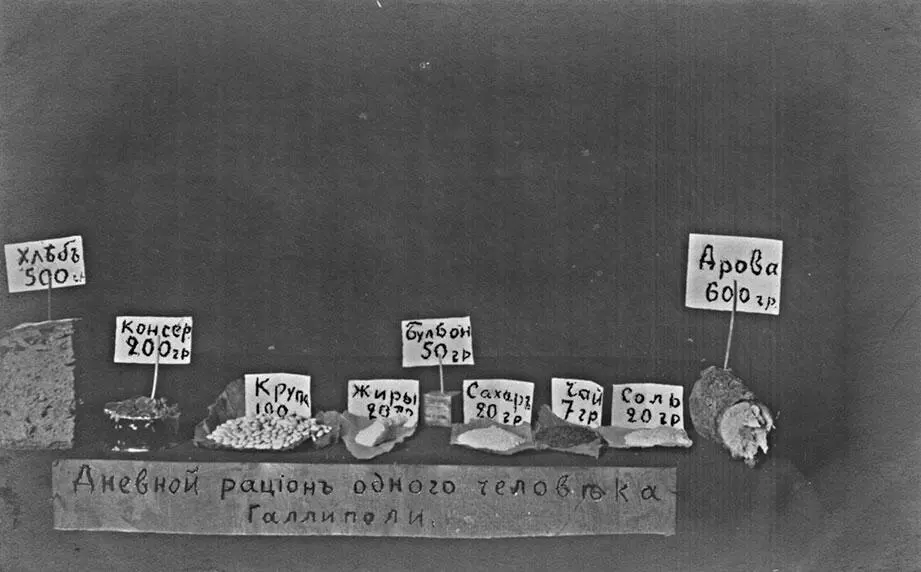 Хлѣбъ
500 гр
Консер
200 гр
Крупа
100
Жиры
20 гр
Булвон
50 гр
Сахаръ
20 гр.
Чай
7 гр
Соль
20 гр
Дрова
600 гр.
Дневной раціонъ одного человѣка
Галлиполи.